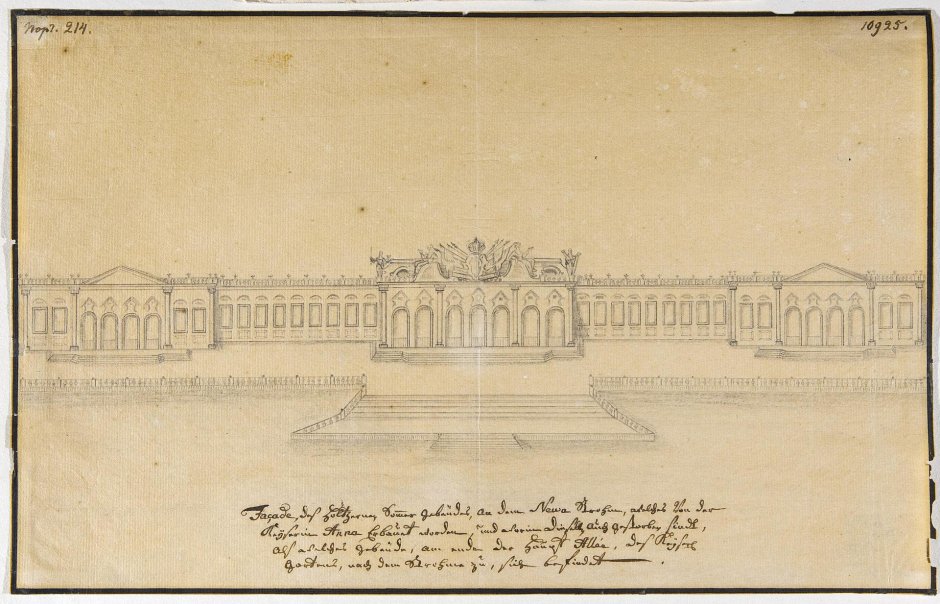 Порт. 214.
10925.
Façade, des höltzernen Somer gebäudes, an dem Newa Strohm, welches Von der
Keyserin Anna Erbauet worden, und worin dieselbe auch gestorben sindt,
als welches gebäude, am ende der haupt Allée, des Keyserl
gartens, nach dem Strohme zu, sich befindet